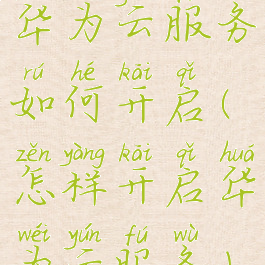 华为云服务
rú hé kāi qǐ
如何开启(
zěn yàng kāi qǐ huá
怎样开启华
wéi yún fú wù
为云服务)